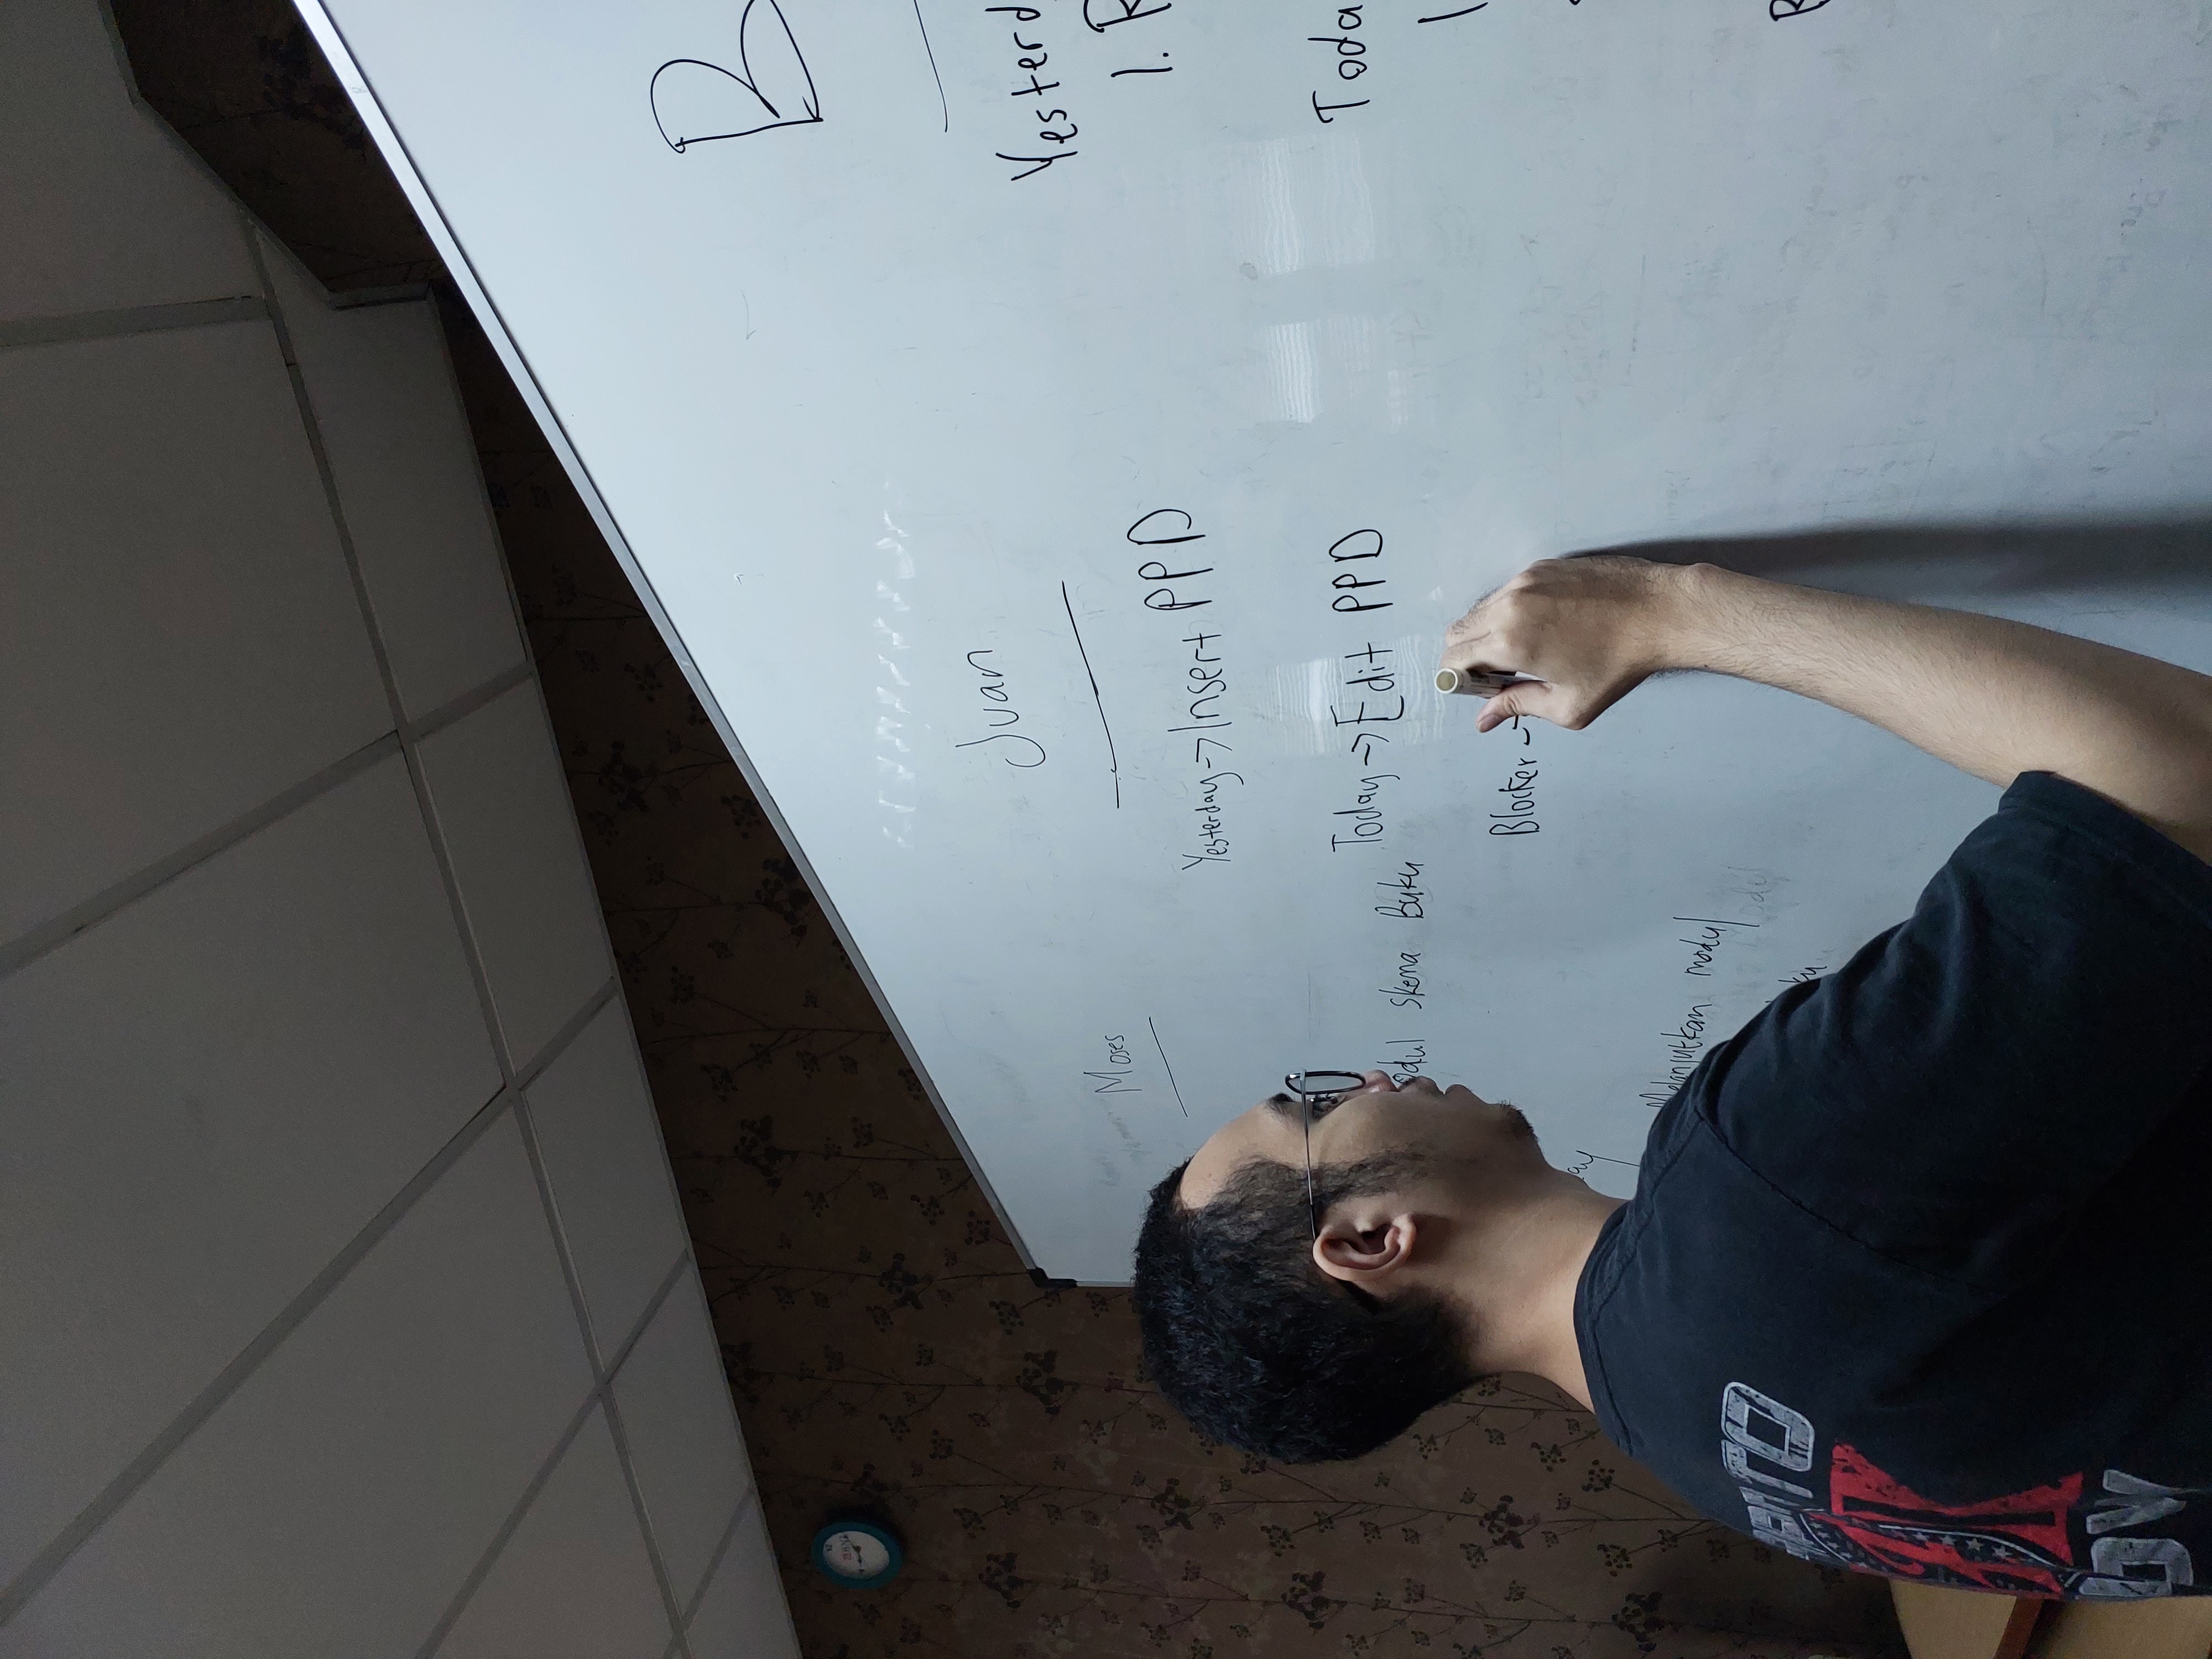 Moses
odul skema Buku
ay
Melanjutkan modul
ku
Juan
Yesterday -> Insert PPD
Today -> Edit PPD
Blocker ->
B
Yesterd
1. R
Toda
1
B
TO
OW
12